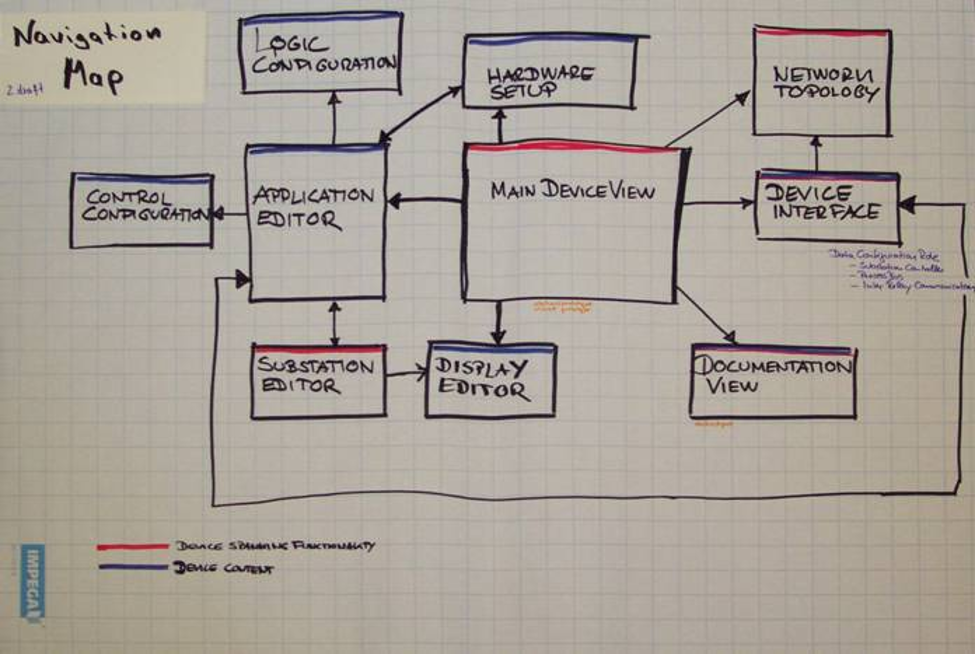 Navigation
Map
2. draft
LOGIC
CONFIGURATION
HARDWARE
SETUP
NETWORK
TOPOLOGY
CONTROL
CONFIGURATION
APPLICATION
EDITOR
MAIN DEVICE VIEW
DEVICE
INTERFACE
Data Configuration Role
- Substation Controller
- Inter Relay Communication
SUBSTATION
EDITOR
DISPLAY
EDITOR
DOCUMENTATION
VIEW
DEVICE SPANNING FUNCTIONALITY
DEVICE CONTENT
IMPEGA